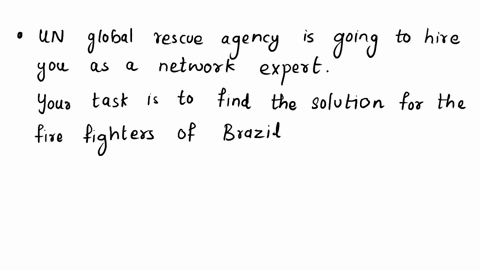 • UN global rescue agency is going to hire
you as a network expert.
Your task is to find the solution for the
fire fighters of Brazil